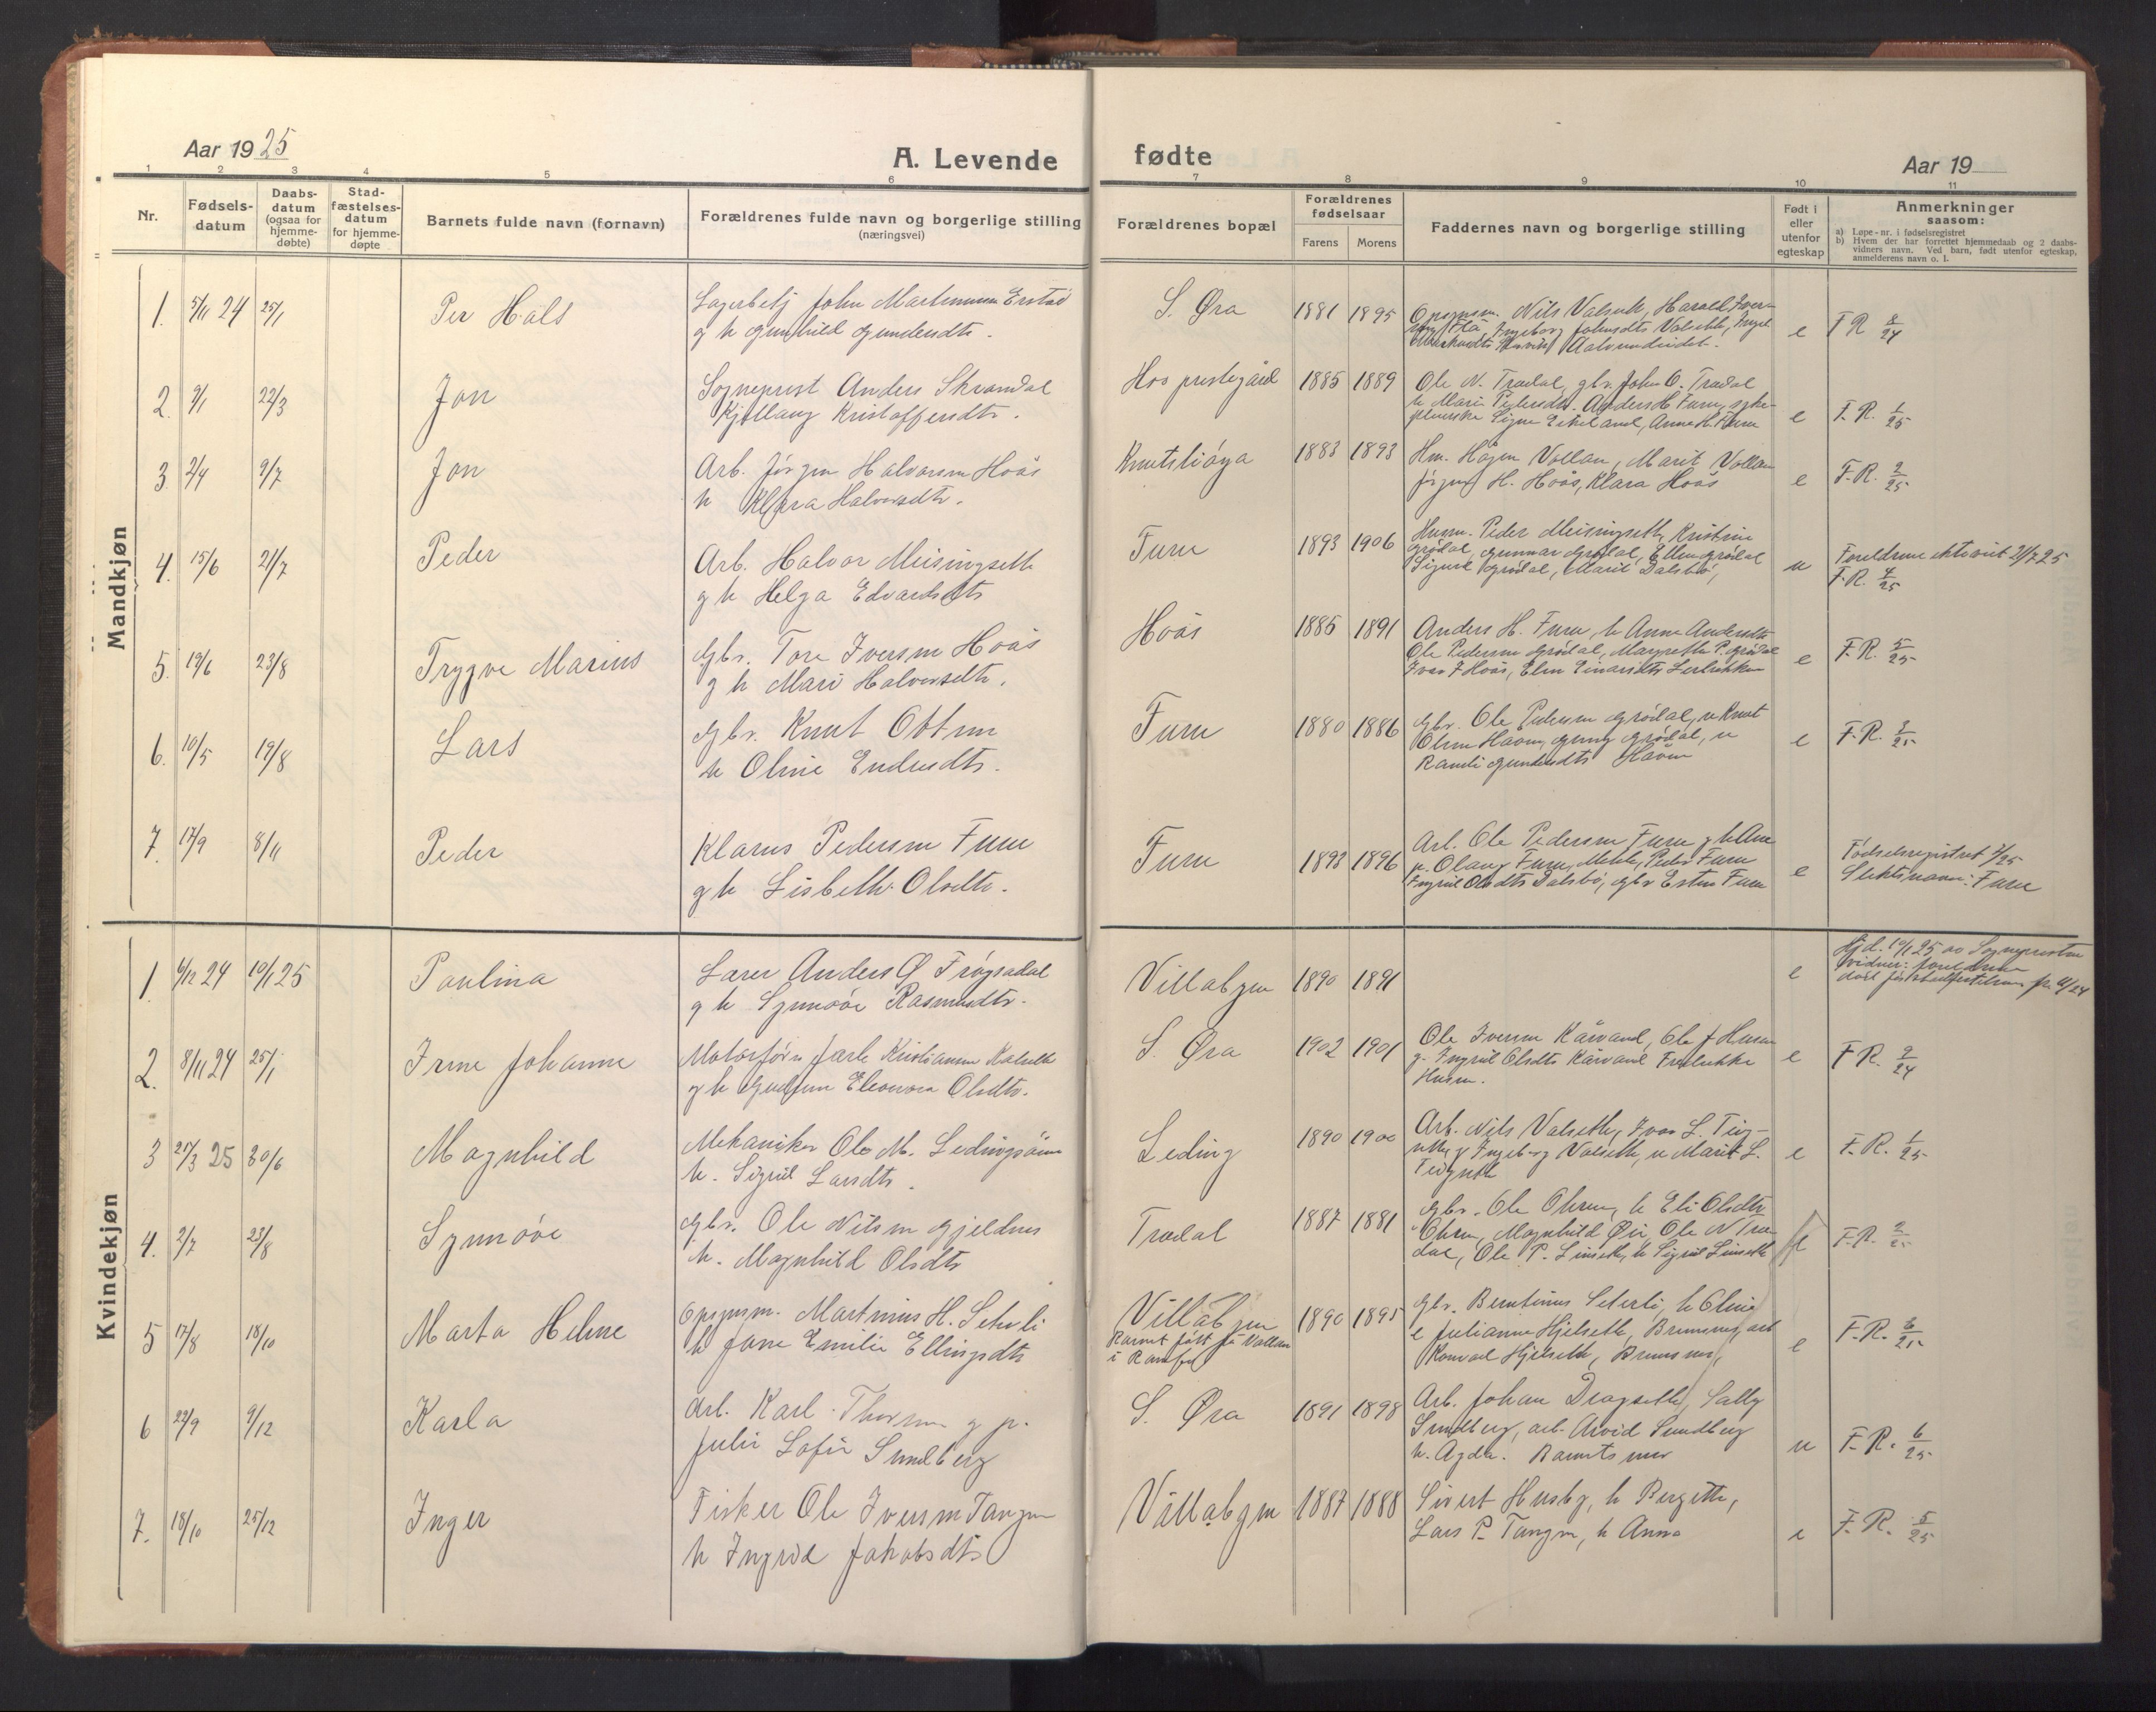 Aar 1925
A. Levende
fødte
Aar 19
1 2 3 4 5 6 7 8 9 10 11
Nr.
Fødsels-
datum
Daabs-
datum
(ogsaa for
hjemme-
døbte)
Stad-
fæstelses-
datum
for hjemme-
døpte
Barnets fulde navn (fornavn)
Forældrenes fulde navn og borgerlige stilling
(næringsvei)
Forældrenes bopæl
Forældrenes
fødselsaar
Farens Morens
Faddernes navn og borgerlige stilling
Født i
eller
utenfor
egteskap
Anmerkninger
saasom:
a) Løpe-nr. i fødselsregistret
b) Hvem der har forrettet hjemmedaab og 2 daabs-
vidners navn. Ved barn, født utenfor egteskap,
anmelderens navn o. l.
Mandkjøn
1. 5/11 24 25/1 Per Hals
Lagerbetj John Martinussen Erstad
g h Gunhild Gundersdtr.
S. Øra 1881 1895
Opsynsm. Nils Valseth, Harald Iver-
Ingeborg Johnsdtr Valseth,
Aalvundeidet.
e F R 8/24
2. 9/1 22/3 Jon
Sogneprest Anders Skrondal
Kjellaug Kristoffersdtr.
Hos prestegård 1885 1889
Ole N. Trædal, gbr. John O. Trædal
h Marit Pedersdtr. Anders H Furu, syke-
pleierske Signe Eikeland, Anne H. Furu
e F. R. 1/25
3 2/4 9/7 Jon
Arb. Jørgen Halvorsen Hoås
h Klara Halvorsdtr.
Knutsliøya 1883 1893
Hm. Hågen Vollan, Marit Vollan
Jørgen H. Hoås, Klara Hoås
e F.R. 2/25
4. 15/6 21/7 Peder
Arb. Halvor Meisingseth
g h Helga Edvardsdtr
Furu 1893 1906
Husm. Peder Meisingseth, Kristine
Grødal, Gunnar Grødal, Ellen Grødal
Sigurd Grødal, Marit Dalsbø,
u Foreldrene ekteviet 21/7 25
F.R. 4/25
5. 19/6 23/8 Trygve Marius
Gbr. Tore Iversen Hoås
g h Mari Halvorsdtr.
Hoås 1885 1891
Anders H. Furu, h Anne Andersdtr
Ole Pedersen Grødal, Margrethe P. Grødal
Ivar I Hoås, Elen Einarsdtr
e F.R. 5/25
6. 10/5 19/8 Lars
Gbr. Knut Ottem
h Oline Endresdtr.
Furu 1880 1886
Gbr. Ole Pedersen Grødal, u Knut
Grødal, u
Randi Gundersdtr Håven
e F.R. 3/25
7. 17/9 8/11 Peder
Klarus Pedersen Furu
g h Lisbeth Olsdtr.
Furu 1893 1896
Arb. Ole Pedersen Furu g h Ane
p. Olaug Furu, Peder Furu
Ingrid Olsdtr Dalsbø, gbr Esten Furu
e Fødselsregistret 7/25
Slektsnavn: Furu
Kvindekjøn
1. 6/12 24 10/1 25 Paulina
Lærer Anders G Frøysadal
g h Synnøve Rasmusdtr.
Villabyen 1890 1891
e Hjd. 10/1 25 av Sognepresten
vidner: foreldrene
død før stadfestelsen
2. 8/11 24 25/1 Irene Johanne
Motorfører Jarle Kristiansen Kalseth
g h Gudrun Eleonora Olsdtr.
S. Øra 1902 1901
Ole Iversen Kårvand, Ole J Husen
g. Ingrid Olsdtr Kårvand Fredrikke
Husen.
e F R. 9/24
3 21/3 25 30/6 Magnhild
Mekaniker Ole M. Ledingsåren
h. Sigrid Larsdtr.
Leding 1890 1900
Arb. Nils Valseth, Ivar L. Teig-
seth g Ingeborg Valseth, u Marit L.
Teigseth
e F. R. 1/25
4. 2/7 23/8 Synnøve
Gbr. Ole Nilsen Gjeldnes
h. Magnhild Olsdtr
Trædal 1887 1881
Gbr. Ole Ohren, h Eli Olsdtr
Ohren, Magnhild Øie, Ole N Træ-
dal, Ole P. Linseth, h Sigrid Linseth
F.R. 2/25
5 17/8 18/10 Marta Helene
Opsynsm. Martinus H. Seterli
h Jane Emilie Ellingsdtr
Villabyen
Barnet født på Vollan
i Ramfjor
1890 1895
Gbr. Berntinus Seterli, h Oline
e Julianne Hjelseth, Brunsnes, arb
Konrad Hjelseth, Brunsnes,
e F.R. 6/25
6 22/9 9/12 Karla
Arb. Karl Thoresen g p.
Julie Sofie Sundberg
S. Øra 1891 1898
Arb. Johan Dragseth, Sally
Sundberg, arb. Arvid Sundberg
h. Agda. Barnets mor
u F.R. 6/25
7. 18/10 25/12 Inger
Fisker Ole Iversen Tangen
h Ingrid Jakobsdtr
Villabyen 1887 1888
Sivert Husby, h Bergitte,
Lars P. Tangen, h Anna
e F. R. 5/25